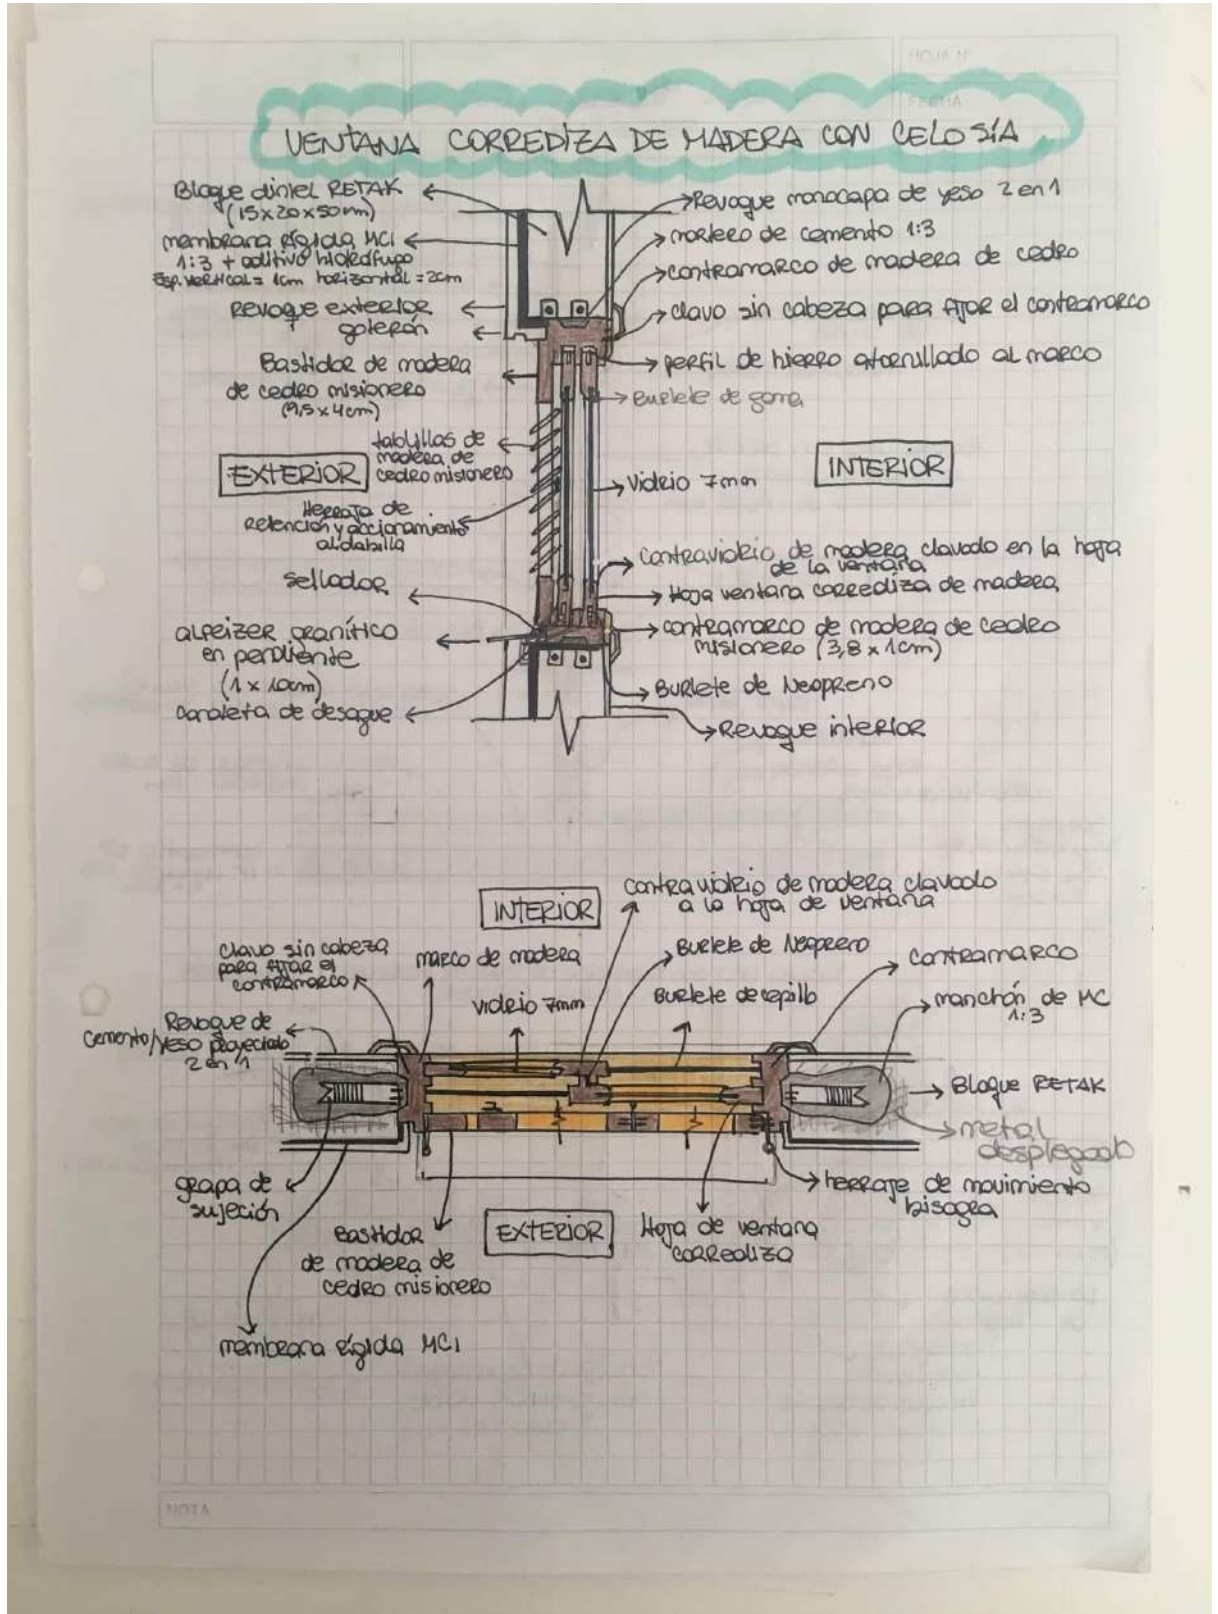 HOJA Nº
FECHA
VENTANA CORREDIZA DE MADERA CON CELOSÍA
Bloque dintel RETAK
(15x20x50cm)
membrana rígida MCI
1:3 + aditivo hidrófugo
Esp. vertical = 1cm horizontal = 2cm
Revoque exterior
goterón
Bastidor de madera
de cedro misionero
(9,5x4cm)
tablillas de
madera de
cedro misionero
EXTERIOR
Herraja de
retención y accionamiento
aldabilla
sellador
alfeizer granítico
en pendiente
(1x10cm)
canaleta de desague
Revoque monocapa de yeso 2 en 1
mortero de cemento 1:3
contramarco de madera de cedro
clavo sin cabeza para fijar el contramarco
perfil de hierro atornillado al marco
Burlete de goma
INTERIOR
Vidrio 7mm
Contravidrio de madera clavado en la hoja
de la ventana
Hoja ventana corrediza de madera
contramarco de madera de cedro
misionero (3,8 x 1cm)
Burlete de Neopreno
Revoque interior
INTERIOR
contravidrio de madera clavado
a la hoja de ventana
clavo sin cabeza
para fijar el
contramarco
marco de madera
Burlete de Neopreno
contramarco
vidrio 7mm
Burlete de cepillo
manchón de MC
1:3
Revoque de
cemento/yeso proyectado
2 en 1
Bloque RETAK
metal
desplegado
grapa de
sujeción
herraje de movimiento
bisagra
Bastidor
de madera de
cedro misionero
EXTERIOR
Hoja de ventana
corrediza
membrana rígida MCI
NOTA